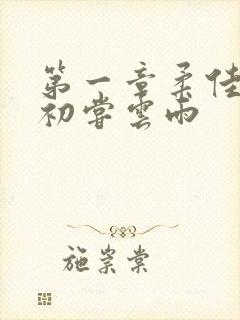 第一章柔佳
初尝雲雨
施崇棠